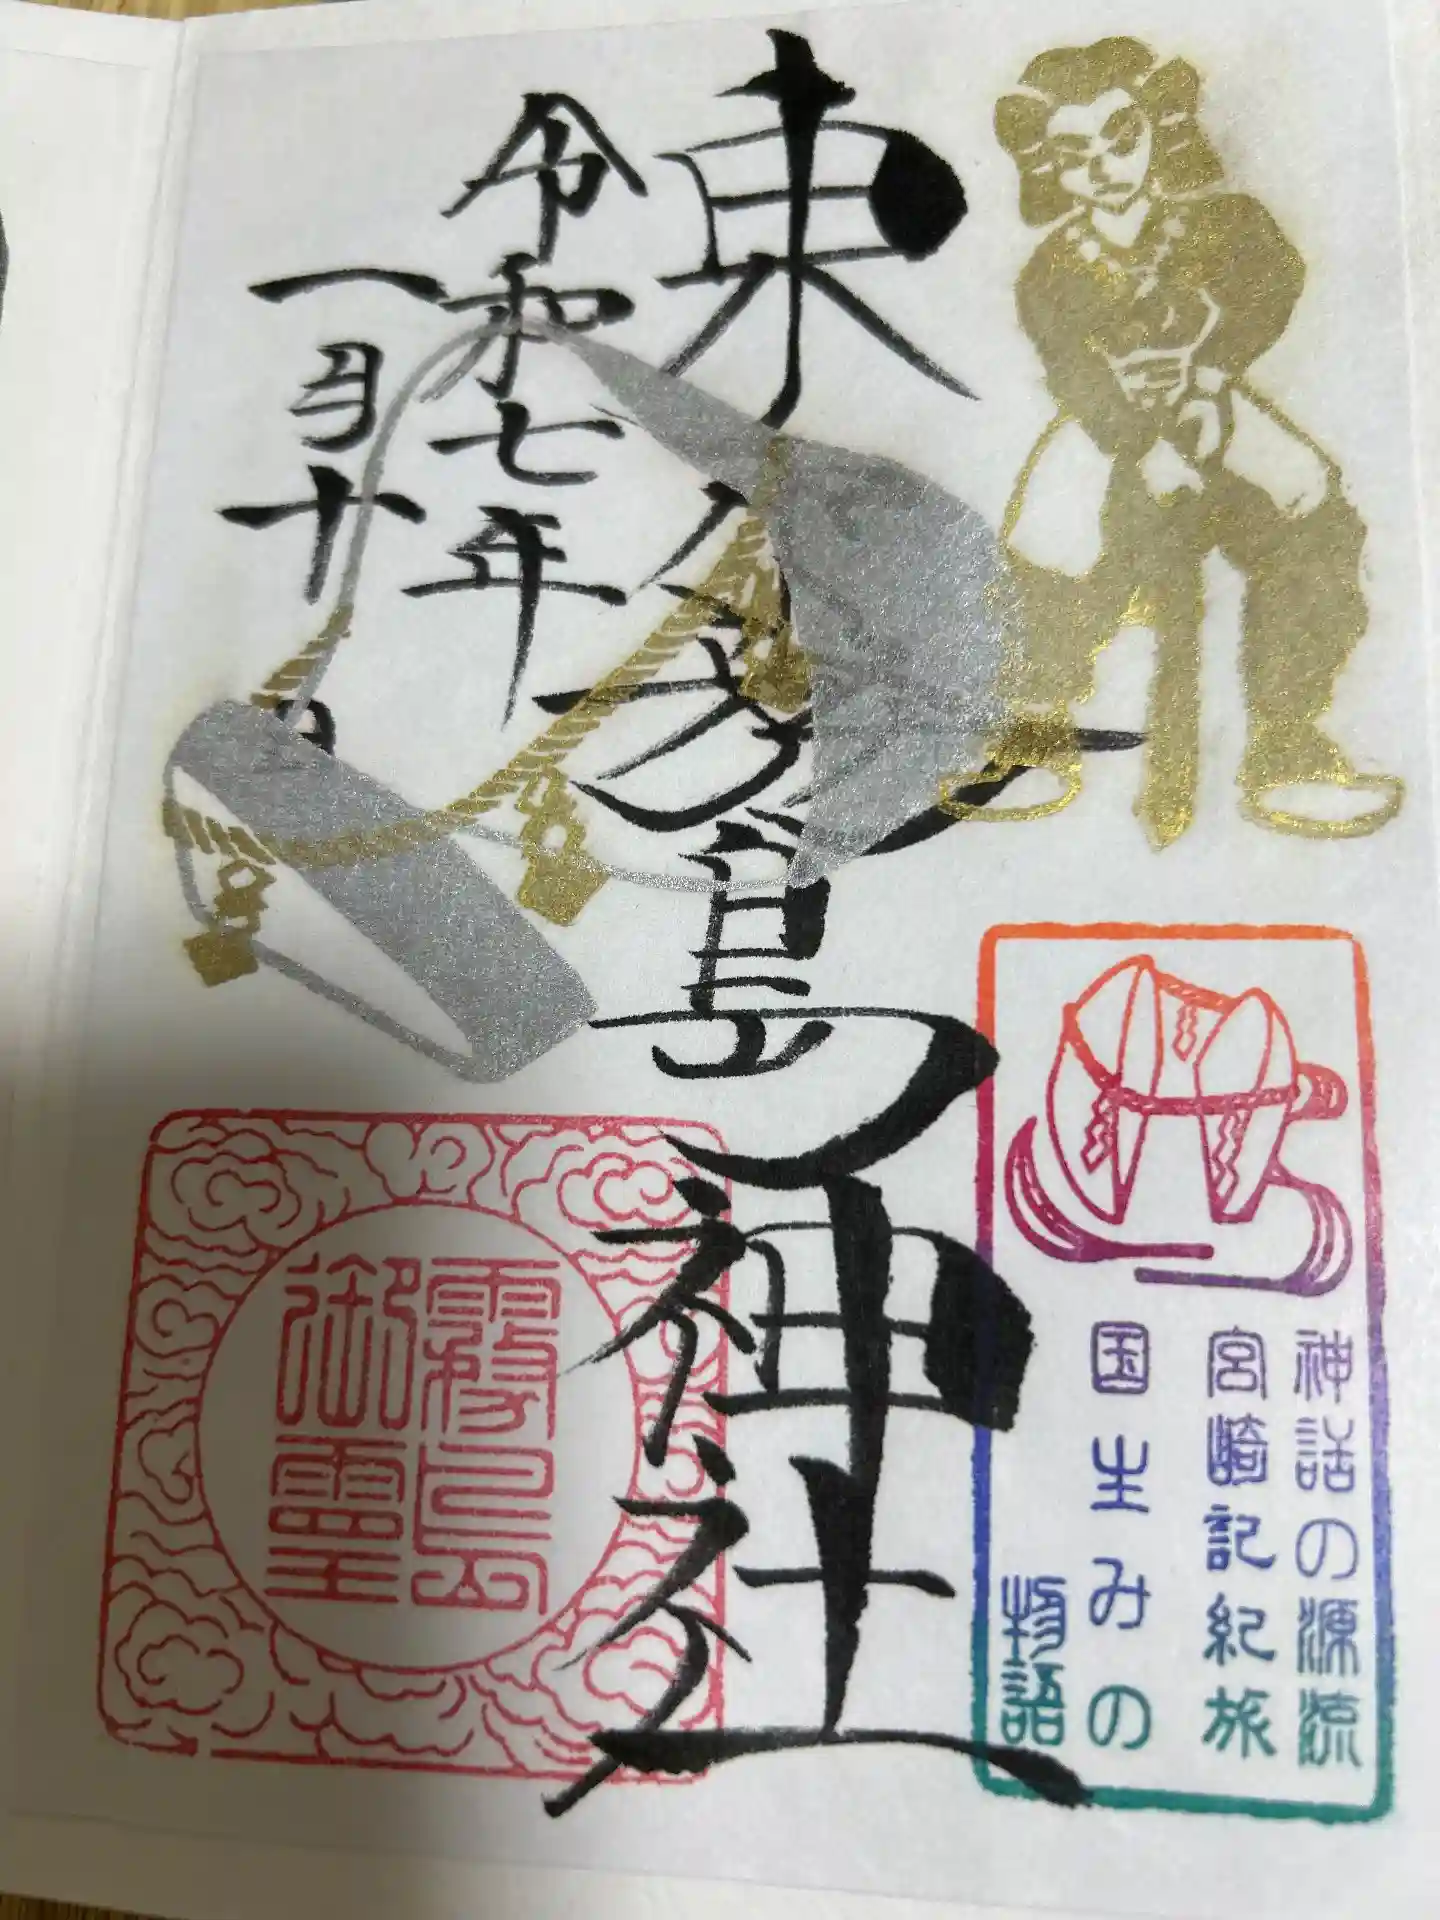 神話の源流
宮崎記紀旅
国生みの
物語
東霧島神社
令和七年
一月十日
霧島
御霊